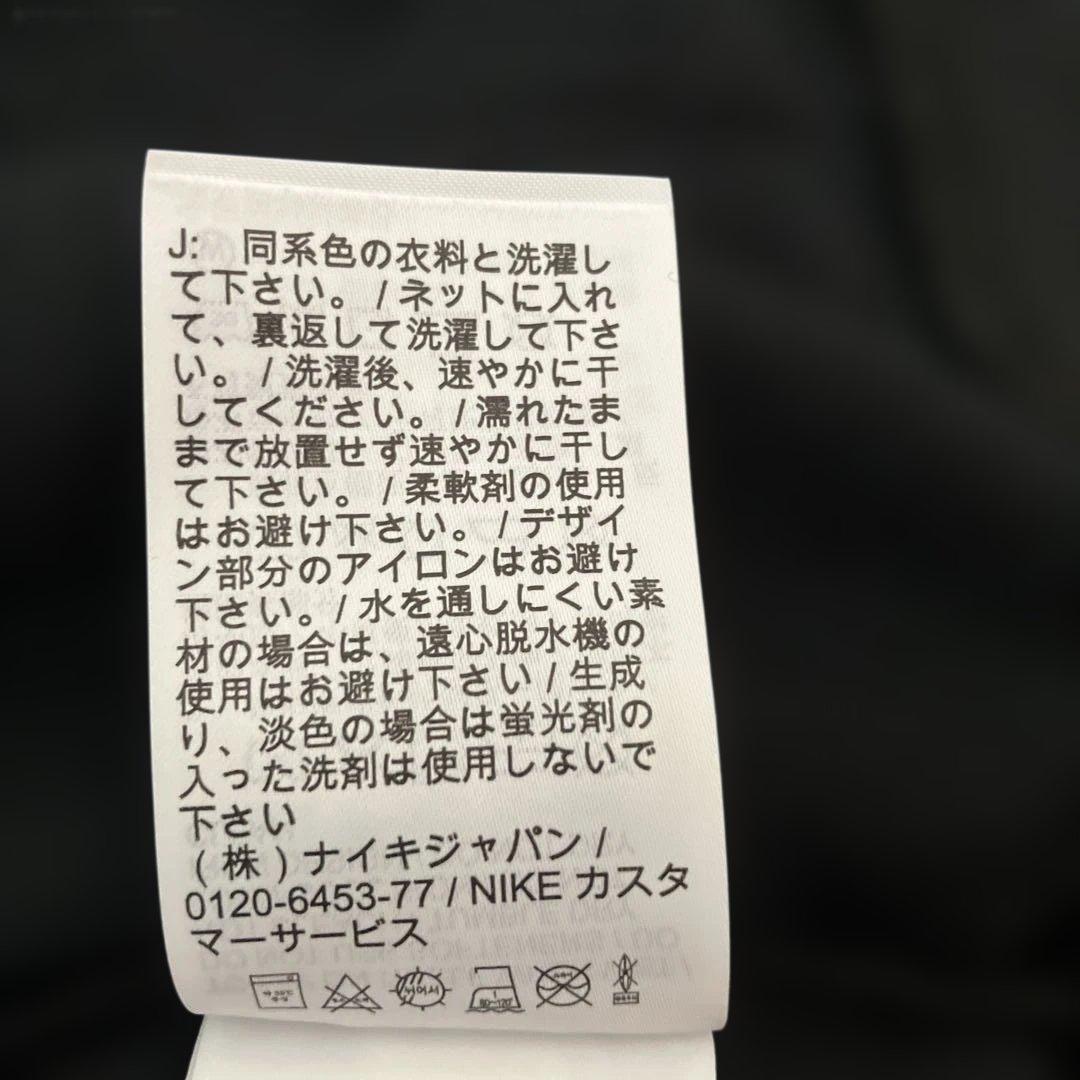 J: 同系色の衣料と洗濯し
て下さい。 / ネットに入れ
て、裏返して洗濯して下さ
い。 / 洗濯後、速やかに干
してください。 / 濡れたま
まで放置せず速やかに干し
て下さい。 / 柔軟剤の使用
はお避け下さい。 / デザイ
ン部分のアイロンはお避け
下さい。 / 水を通しにくい素
材の場合は、遠心脱水機の
使用はお避け下さい / 生成
り、淡色の場合は蛍光剤の
入った洗剤は使用しないで
下さい
(株)ナイキジャパン /
0120-6453-77 / NIKE カスタ
マーサービス
80~120°